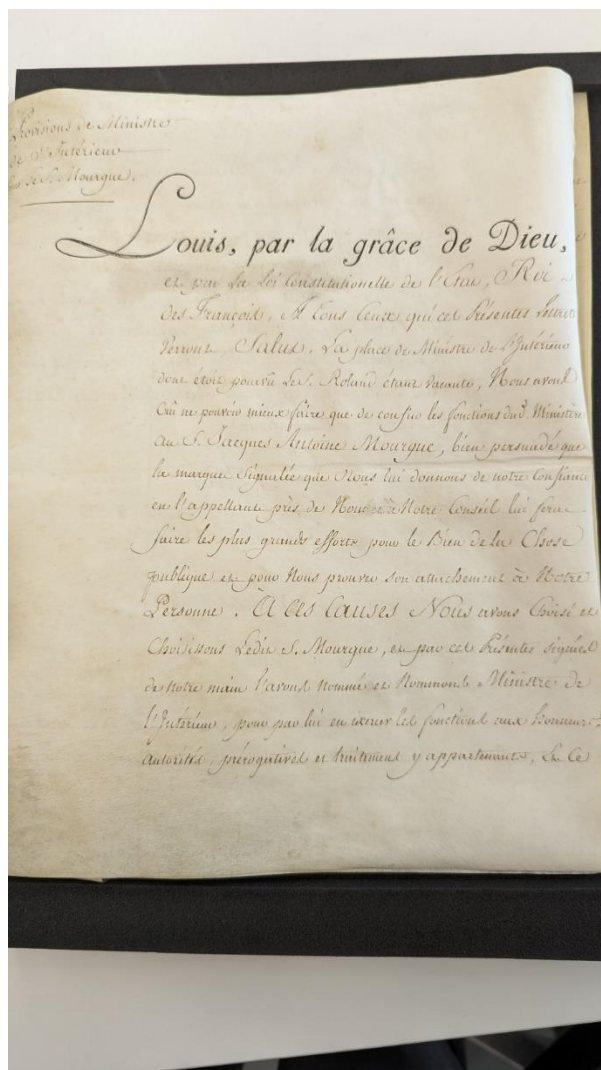 Provisions de Ministre
de l'Intérieur
de S. Mourgue.
Louis, par la grâce de Dieu,
et par la Loi Constitutionelle de l'Etat, Roi
des François, A tous Ceux qui ces Présentes Lettres
Verront, Salut. La place de Ministre de l'Intérieur
dont étoit pourvû Le S. Roland étant vacante, Nous avons
Crû ne pouvoir mieux faire que de confier les fonctions dud. Ministère
au S. Jacques Antoine Mourgue, bien persuadé que
la marque Signalée que Nous lui donnons de notre Confiance
en l'appellant près de Nous et à Notre Conseil lui fera
faire les plus grands efforts pour le Bien de la Chose
publique et pour Nous prouver son attachement à Notre
Personne. A ces Causes Nous avons Choisi et
Choisissons Ledit S. Mourgue, et par ces Présentes signées
de notre main l'avons nommé et Nommons Ministre de
l'Intérieur, pour par lui en exercer les fonctions aux honneurs,
autorités, prérogatives et traitement y appartenants, En Ce